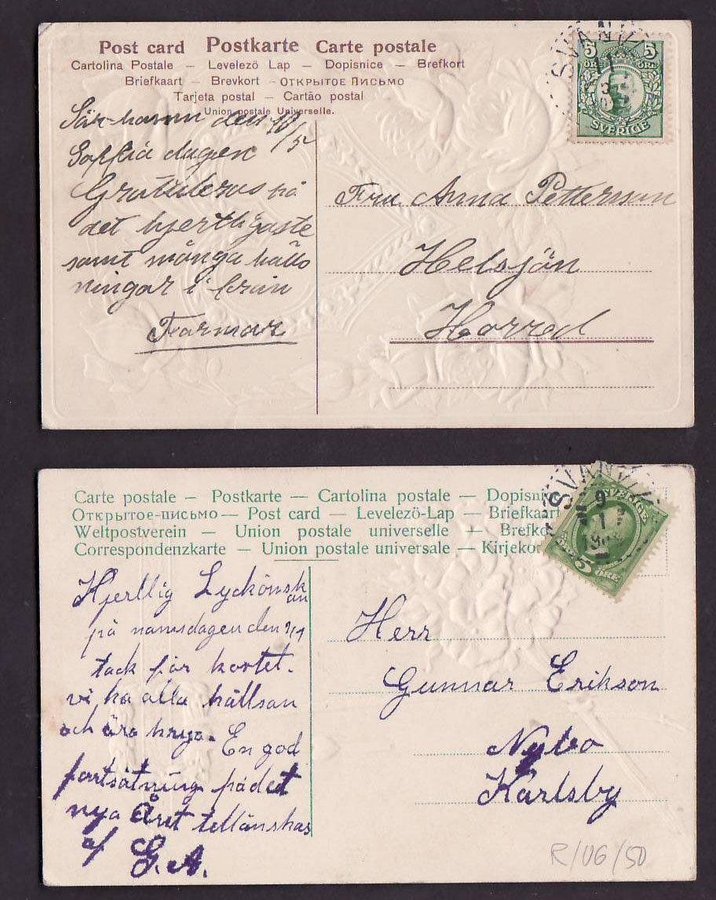 Post card Postkarte Carte postale
Cartolina Postale – Levelező Lap – Dopisnice – Brefkort
Briefkaart – Brevkort – ОТКРЫТОЕ ПИСЬМО
Tarjeta postal – Cartão postal
Union postale Universelle.
den 10/5
Soffia dagen
Gratuleras på
det hjertligaste
samt många häls
ningar i från
Farmor
5 5
SVERIGE
Fru Anna Petterson
Helsjön
Horred
Carte postale — Postkarte — Cartolina postale — Dopisni
Открытое-письмо — Post card — Levelező-Lap — Briefkaart
Weltpostverein — Union postale universelle — Brefko
Correspondenzkarte — Union postale universale — Kirjeko
SVERIGE
5 ÖRE
Hjertlig Lyckönsk
an
på namsdagen den
tack för kortet.
vi ha alla hällsan
och ära krya. En god
fortsätning på det
nya Året tellönskas
af
G.A.
Herr
Gunnar Erikson
Nybo
Karlsby
R/06/50